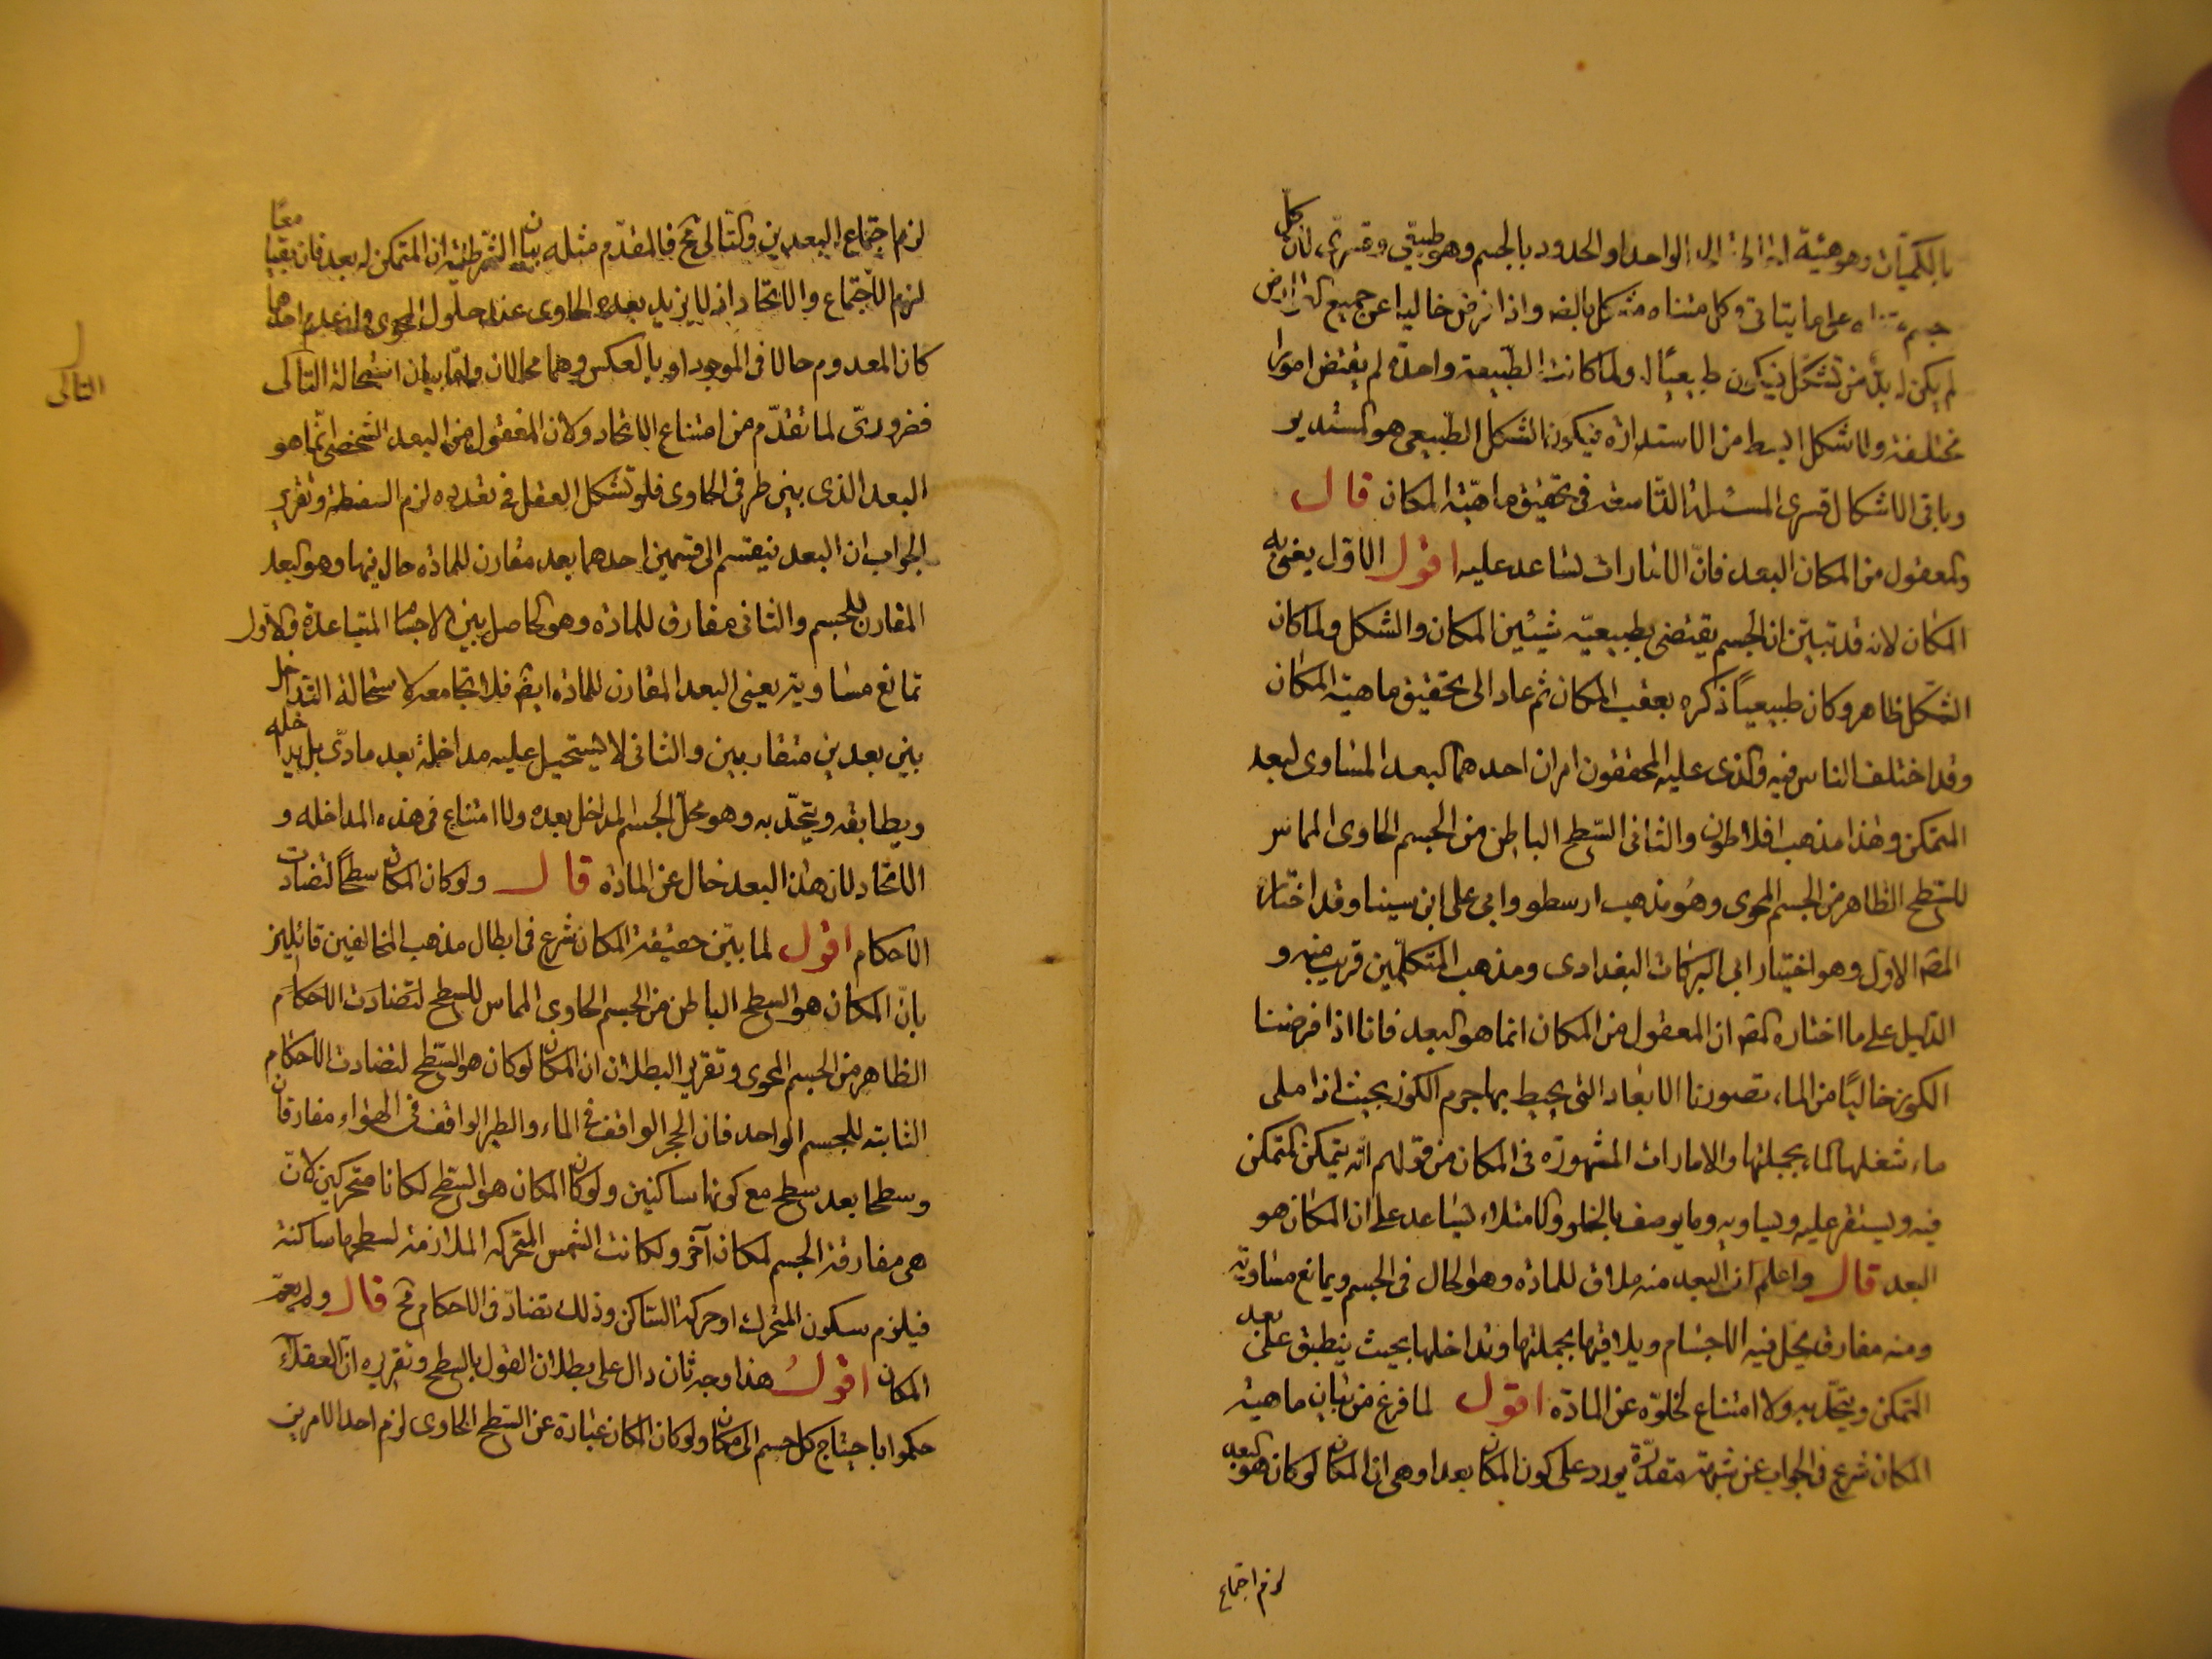 بالكميات وهو هيئة احاطة الواحد او الحدود بالجسم وهو طبيعي وقسري لان كل
جسم متناه على ما يتاتى وكل متناه مشكل بالضه واذا فرض خاليا عن جميع العوارض
لم يكن له بد من تشكل فيكون طبيعيا له ولما كانت الطبيعة واحدة لم يقتض امورا
مختلفة ولا شكل ابسط من الاستدارة فيكون الشكل الطبيعى هو المستدير
وباقى الاشكال قسرى المسئلة التاسعة فى تحقيق ماهية المكان قال
والمعقول من المكان البعد فان الامارات تساعد عليه اقول الاول يعنى به
المكان لانه قد تبين ان الجسم يقتضى بطبيعته شيئين المكان والشكل ولما كان
الشكل ظاهر وكان طبيعياً ذكره بعقب المكان ثم عاد الى تحقيق ماهية المكان
وقد اختلف الناس فيه والذى عليه المحققون امران احدهما البعد المساوى لبعد
المتمكن وهذا مذهب افلاطون والثانى السطح الباطن من الجسم الحاوى المماس
للسطح الظاهر من الجسم المحوى وهو مذهب ارسطو وابى على ابن سينا وقد اختار
المصّ الاول وهو اختيار ابى البركات البغدادى ومذهب المتكلمين قريب منه و
الدليل على ما اختاره المصّ ان المعقول من المكان انما هو البعد فانا اذا فرضنا
الكوز خاليًا من الماء تصورنا الابعاد التى يحيط بها جرم الكوز بحيث اذا ملى
ماء شغلها الماء بجملتها والامارات المشهورة فى المكان من قولهم انه يتمكن المتمكن
فيه ويستقر عليه ويساويه وما يوصف بالخلو والامتلاء يساعد على ان المكان هو
البعد قال واعلم ان البعد منه ملاق للمادة وهو الحال فى الجسم ويمانع مساويه
ومنه مفارق يحل فيه الاجسام ويلاقيها بجملتها ويداخلها بحيث ينطبق على بعد
المتمكن ويتحد به ولا امتناع لخلوه عن المادة اقول لما فرغ من بيان ماهية
المكان شرع فى الجواب عن شبهة مقدرة يورد على كون المكان بعدا وهى ان المكان لو كان هو البعد
لزم اجتماع
لزم اجتماع البعدين والتالى مح فالمقدم مثله بيان الشرطية ان المتمكن له بعد فان بقيا معًا
لزم الاجتماع والاتحاد اذ لا يزيد بعد الحاوى عند حلول المحوى وان عدم احدهما
كان المعدوم حالا فى الموجود او بالعكس وهما محالان واما بيان استحالة التالى
فضرورىّ لما تقدّم من امتناع الاتحاد ولان المعقول من البعد الشخصى انما هو
البعد الذى بين طرفى الحاوى فلو تشكل العقل فى تعدده لزم السفسطة وتقرير
الجواب ان البعد ينقسم الى قسمين احدهما بعد مقارن للمادة حال فيها وهو البعد
المقارن للجسم والثانى مفارق للمادة وهو الحاصل بين الاجسام المتباعدة والاول
تمانع مساويه يعنى البعد المقارن للمادة ايضّ فلا تجامعه لاستحالة التداخل
بين بعدين متقاربين والثانى لا يستحيل عليه مداخلة بعد مادى بل يداخله
ويطابقه ويتحد به وهو محل الجسم المداخل بعده ولا امتناع فى هذه المداخله و
الاتحاد لان هذا البعد خال عن المادة قال ولو كان المكان سطحًا لتضادت
الاحكام اقول لما بين حقيقة المكان شرع فى ابطال مذهب المخالفين قائلين
بان المكان هو السطح الباطن من الجسم الحاوى المماس للسطح لتضادت الاحكام
الظاهر من الجسم المحوى وتقرير البطلان ان المكان لو كان هو السطح لتضادت الاحكام
الثابته للجسم الواحد فان الحجر الواقف فى الماء والطير الواقف فى الهواء مفارقان
وسطحا بعد سطح مع كونهما ساكنين ولو كان المكان هو السطح لكانا متحركين لان
هى مفارقة الجسم لمكان آخر ولكانت الشمس المتحركه الملازمة لسطحها ساكنة
فيلزم سكون المتحرك او حركة الساكن وذلك تضاد فى الاحكام مح قال ولم يعم
المكان اقول هذا وجه ثان دال على بطلان القول بالسطح وتقريره ان العقلاء
حكموا باحتياج كل جسم الى مكان ولو كان المكان عبارة عن السطح الحاوى لزم احد الامرين
التالى